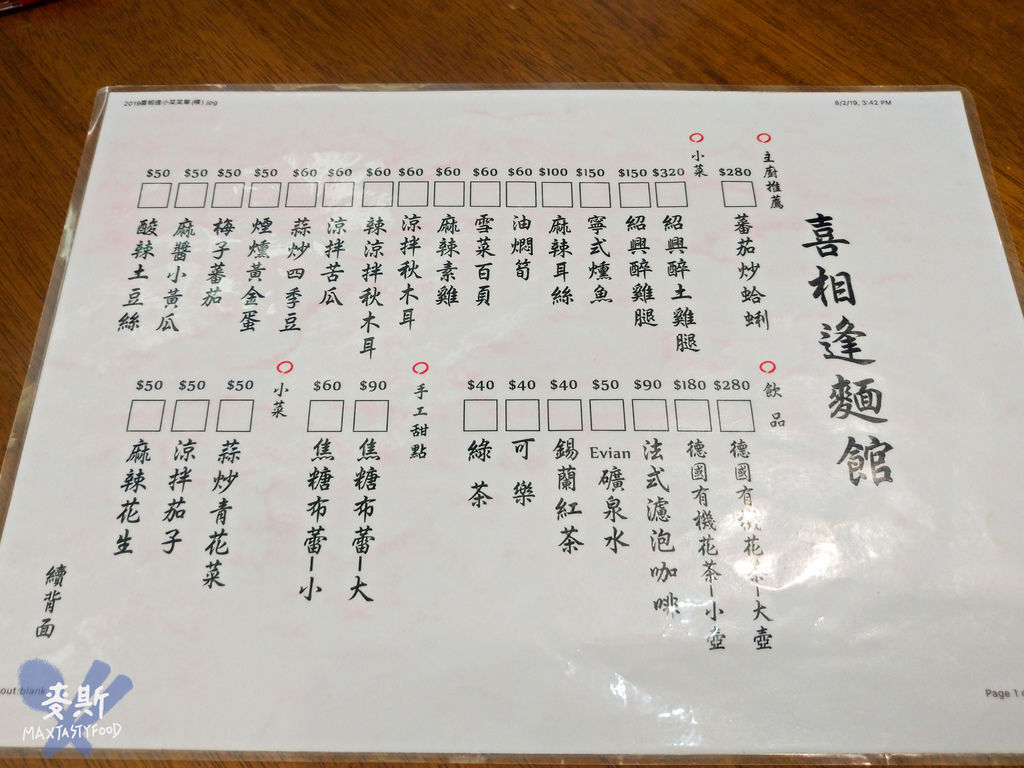 2019喜相逢小菜菜單(橫).jpg
8/2/19, 3:42 PM
喜相逢麵館
主廚推薦
$280
蕃茄炒蛤蜊
小菜
$320
紹興醉土雞腿
$150
紹興醉雞腿
$150
寧式燻魚
$100
麻辣耳絲
$60
油燜筍
$60
雪菜百頁
$60
麻辣素雞
$60
涼拌秋木耳
$60
辣涼拌秋木耳
$60
涼拌苦瓜
$60
蒜炒四季豆
$50
煙燻黃金蛋
$50
梅子蕃茄
$50
麻醬小黃瓜
$50
酸辣土豆絲
飲品
$280
德國有機花茶-大壺
$180
德國有機花茶-小壺
$90
法式濾泡咖啡
$50
Evian礦泉水
$40
錫蘭紅茶
$40
可樂
$40
綠茶
手工甜點
$90
焦糖布蕾-大
$60
焦糖布蕾-小
小菜
$50
蒜炒青花菜
$50
涼拌茄子
$50
麻辣花生
續背面
out:blank
Page 1
麥斯
MAXTASTYFOOD